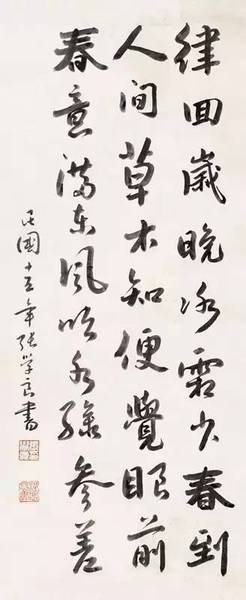 律回歲晚冰霜少春到
人間草木知便覺眼前
春意滿東風吹水綠參差
民國十五年張學良書